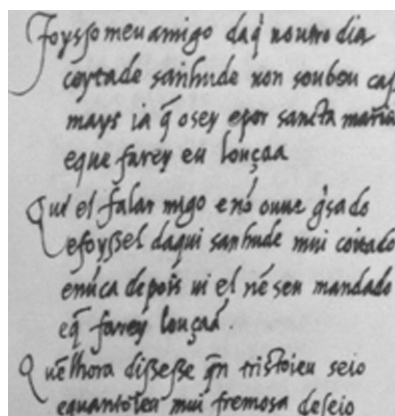 Foysso meu amigo daq̄ noutro dia
coytade sanhude non soubeu cas
mays ia q̄ o sey e por sancta maria
e que farey eu louçaa
Quis el falar migo e nō ouue g̃sado
e foyssel daqui sanhude mui coitado
e nūca depois ui el nē seu mandado
e q̄ farey louçaā.
Quē lhora dissesse q̄n tristoieu seio
e quantoieu mui fremosa deseio